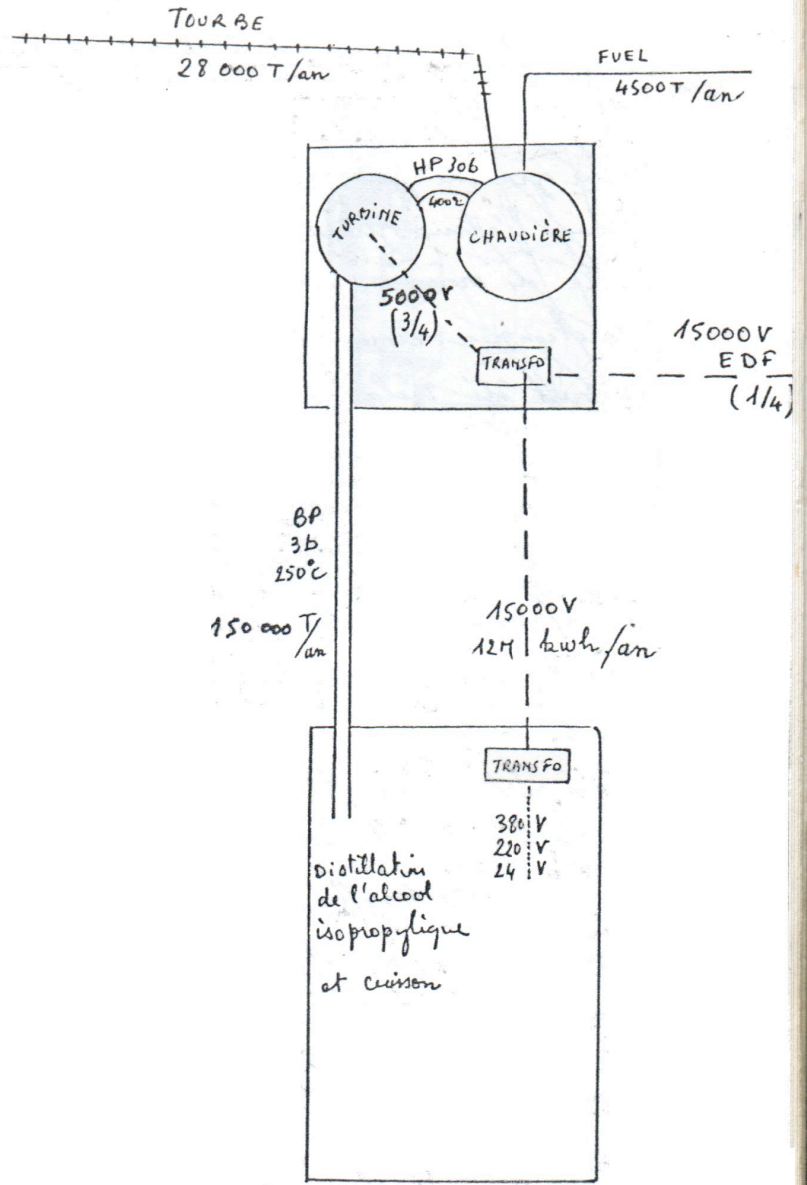 TOURBE
28 000 T/an
FUEL
4500T/an
HP 30b
400°
TURBINE
CHAUDIÈRE
5000V
(3/4)
TRANSFO
15000V
EDF
(1/4)
BP
3b
250°c
150 000 T/an
15000V
12M kwh/an
TRANSFO
380 V
220 V
24 V
Distillation
de l'alcool
isopropylique
et cuisson